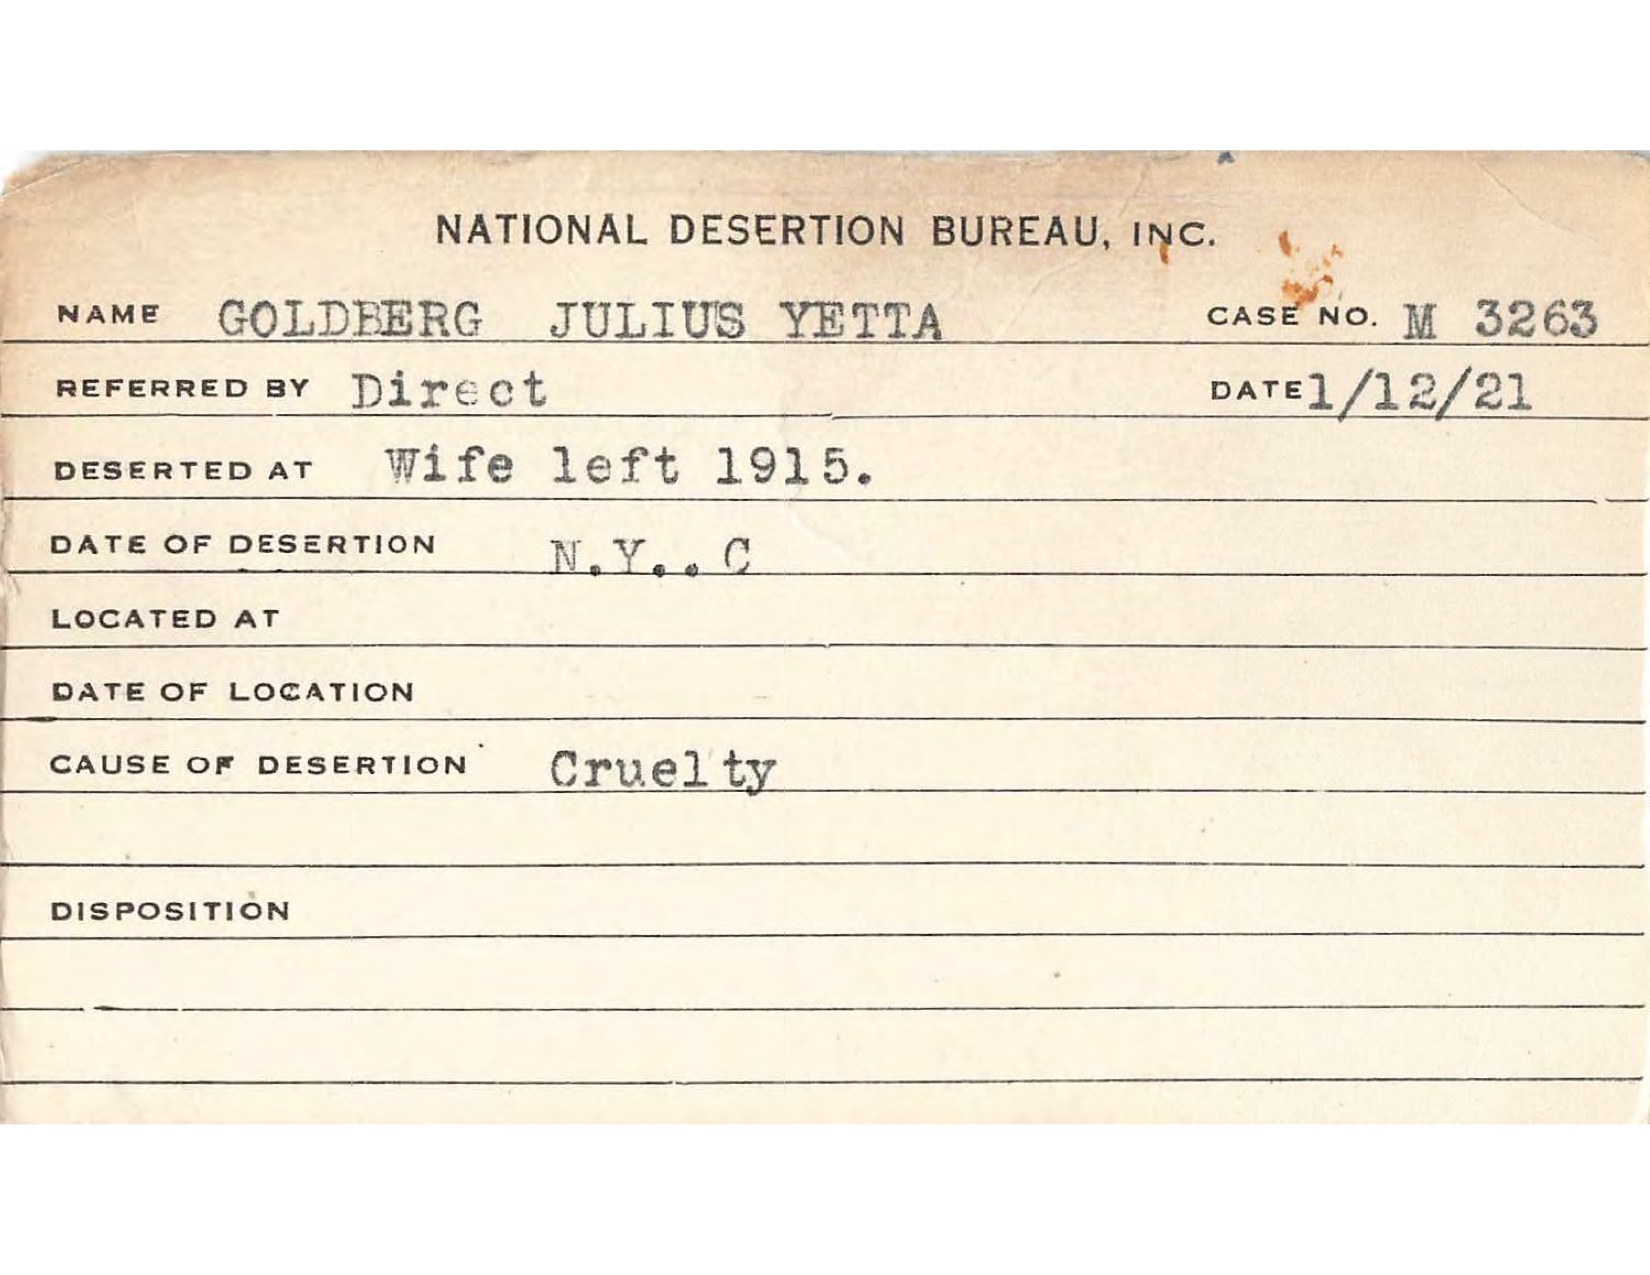 NATIONAL DESERTION BUREAU, INC.
NAME GOLDBERG JULIUS YETTA CASE NO. M 3263
REFERRED BY Direct DATE 1/12/21
DESERTED AT Wife left 1915.
DATE OF DESERTION N.Y..C
LOCATED AT
DATE OF LOCATION
CAUSE OF DESERTION Cruelty
DISPOSITION